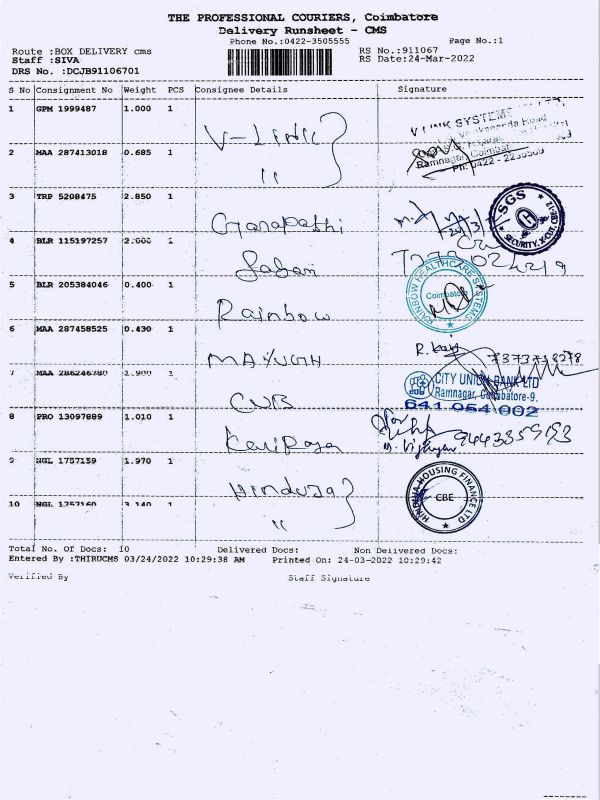 THE PROFESSIONAL COURIERS, Coimbatore
Delivery Runsheet - CMS
Phone No.:0422-3505555
Page No.:1
Route :BOX DELIVERY cms
RS No.:911067
Staff :SIVA
RS Date:24-Mar-2022
DRS No. :DCJB91106701
S No Consignment No Weight PCS Consignee Details Signature
1 GPM 1999487 1.000 1
V-LINK
V LINK SYSTEMS
2 MAA 287413018 0.685 1
"
Ramnagar, Coimbat
Ph: 0422 -
3 TRP 5208475 2.850 1
Ganapathi
SGS
SECURITY
4 BLR 115197257 2.000 1
Sabari
5 BLR 205384046 0.400 1
Rainbow
RAINBOW HEALTHCARE SYSTEMS
Coimbatore
6 MAA 287458525 0.430 1
MAYUGH
7373718278
7 MAA 286246780 1.900 1
CUB
CITY UNION BANK LTD
Ramnagar, Coimbatore-9.
641 054 002
8 PRO 13097889 1.010 1
9443359193
9 NGL 1757159 1.970 1
Hinduja
HINDUJA HOUSING FINANCE LTD
CBE
10 NGL 1757160 3.140 1
"
Total No. Of Docs: 10 Delivered Docs: Non Delivered Docs:
Entered By :THIRUCMS 03/24/2022 10:29:38 AM Printed On: 24-03-2022 10:29:42
Verified By Staff Signature